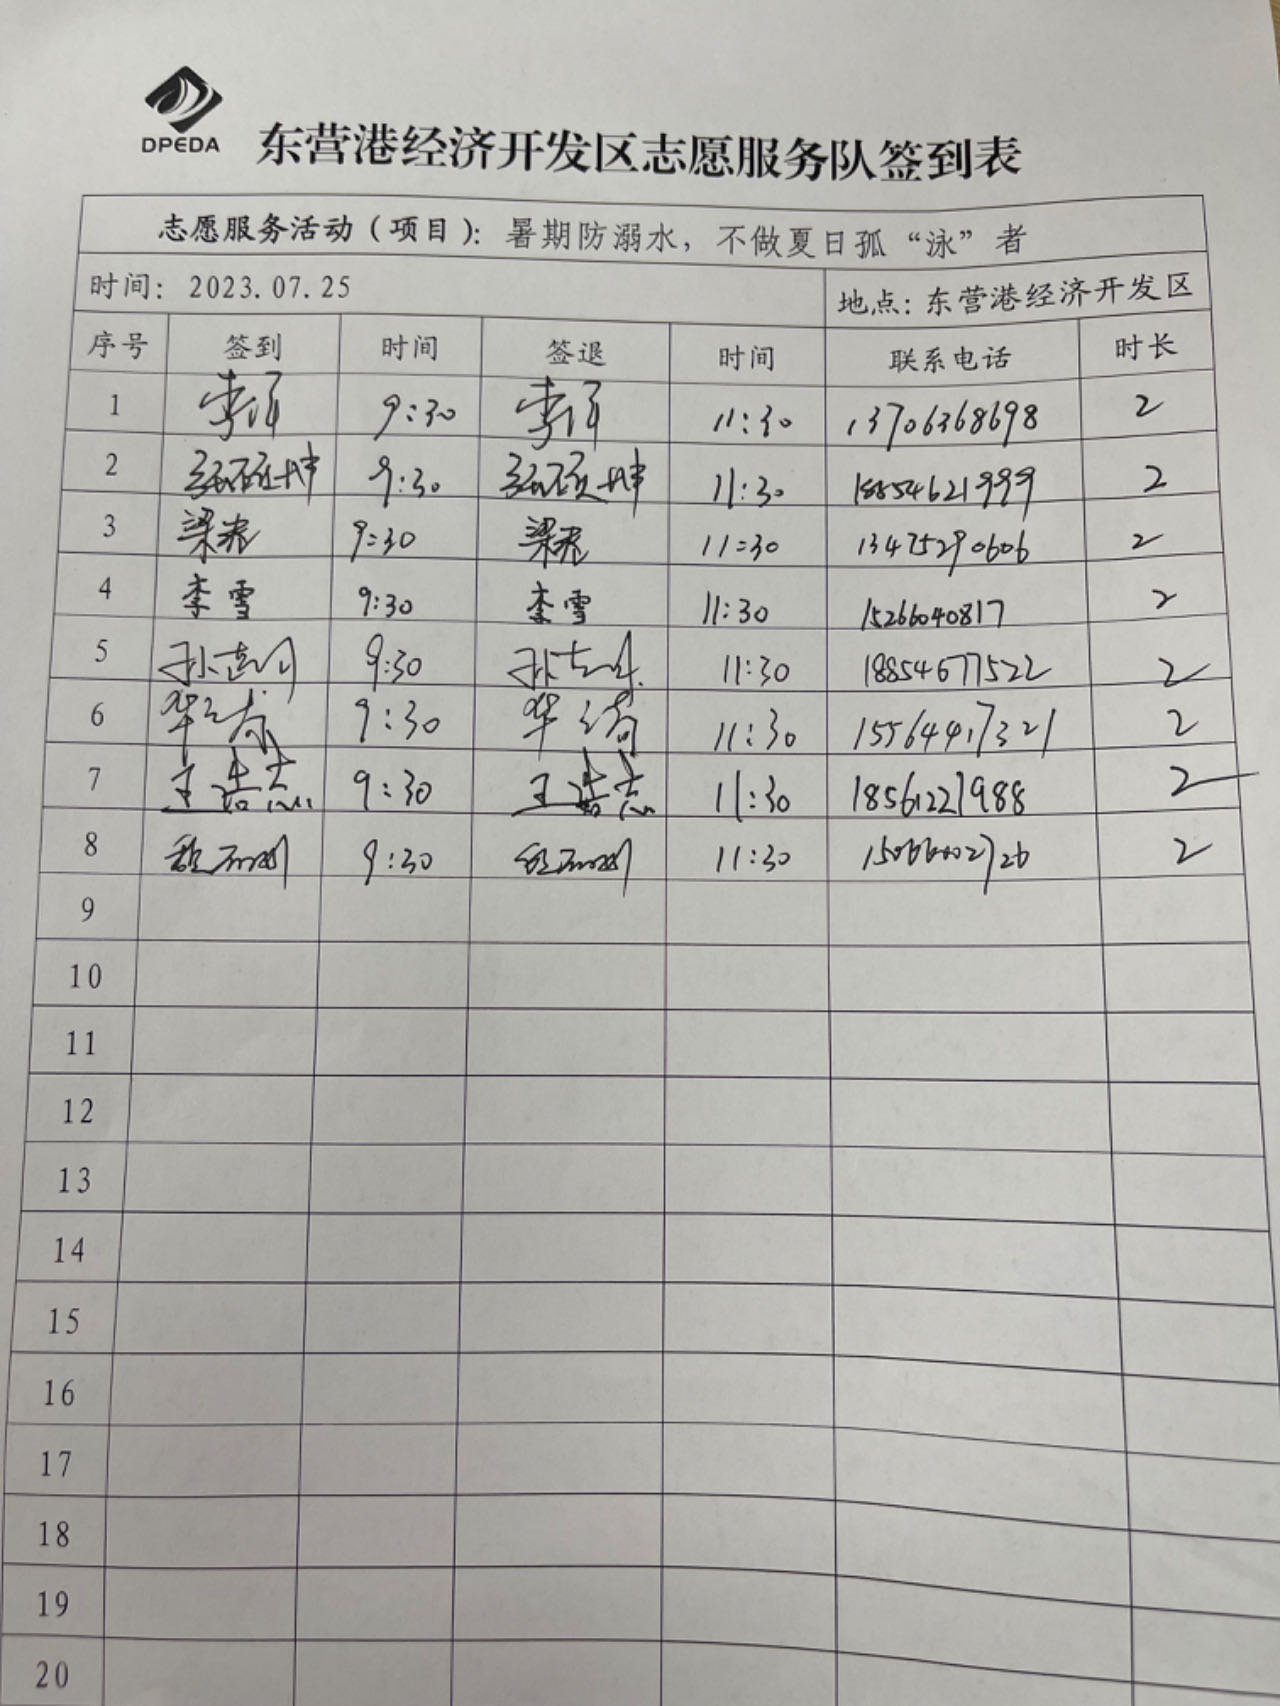 DPEDA
东营港经济开发区志愿服务队签到表
志愿服务活动（项目）：暑期防溺水，不做夏日孤“泳”者
时间：2023.07.25 地点：东营港经济开发区
序号 签到 时间 签退 时间 联系电话 时长
1 9:30 11:30 13706368698 2
2 9:30 11:30 18854621999 2
3 梁 9:30 梁 11:30 13475290606 2
4 李雪 9:30 李雪 11:30 15266040817 2
5 孙 9:30 孙 11:30 18854677522 2
6 华 9:30 华 11:30 15564417321 2
7 王浩志 9:30 王浩志 11:30 18561221988 2
8 9:30 11:30 2
9
10
11
12
13
14
15
16
17
18
19
20